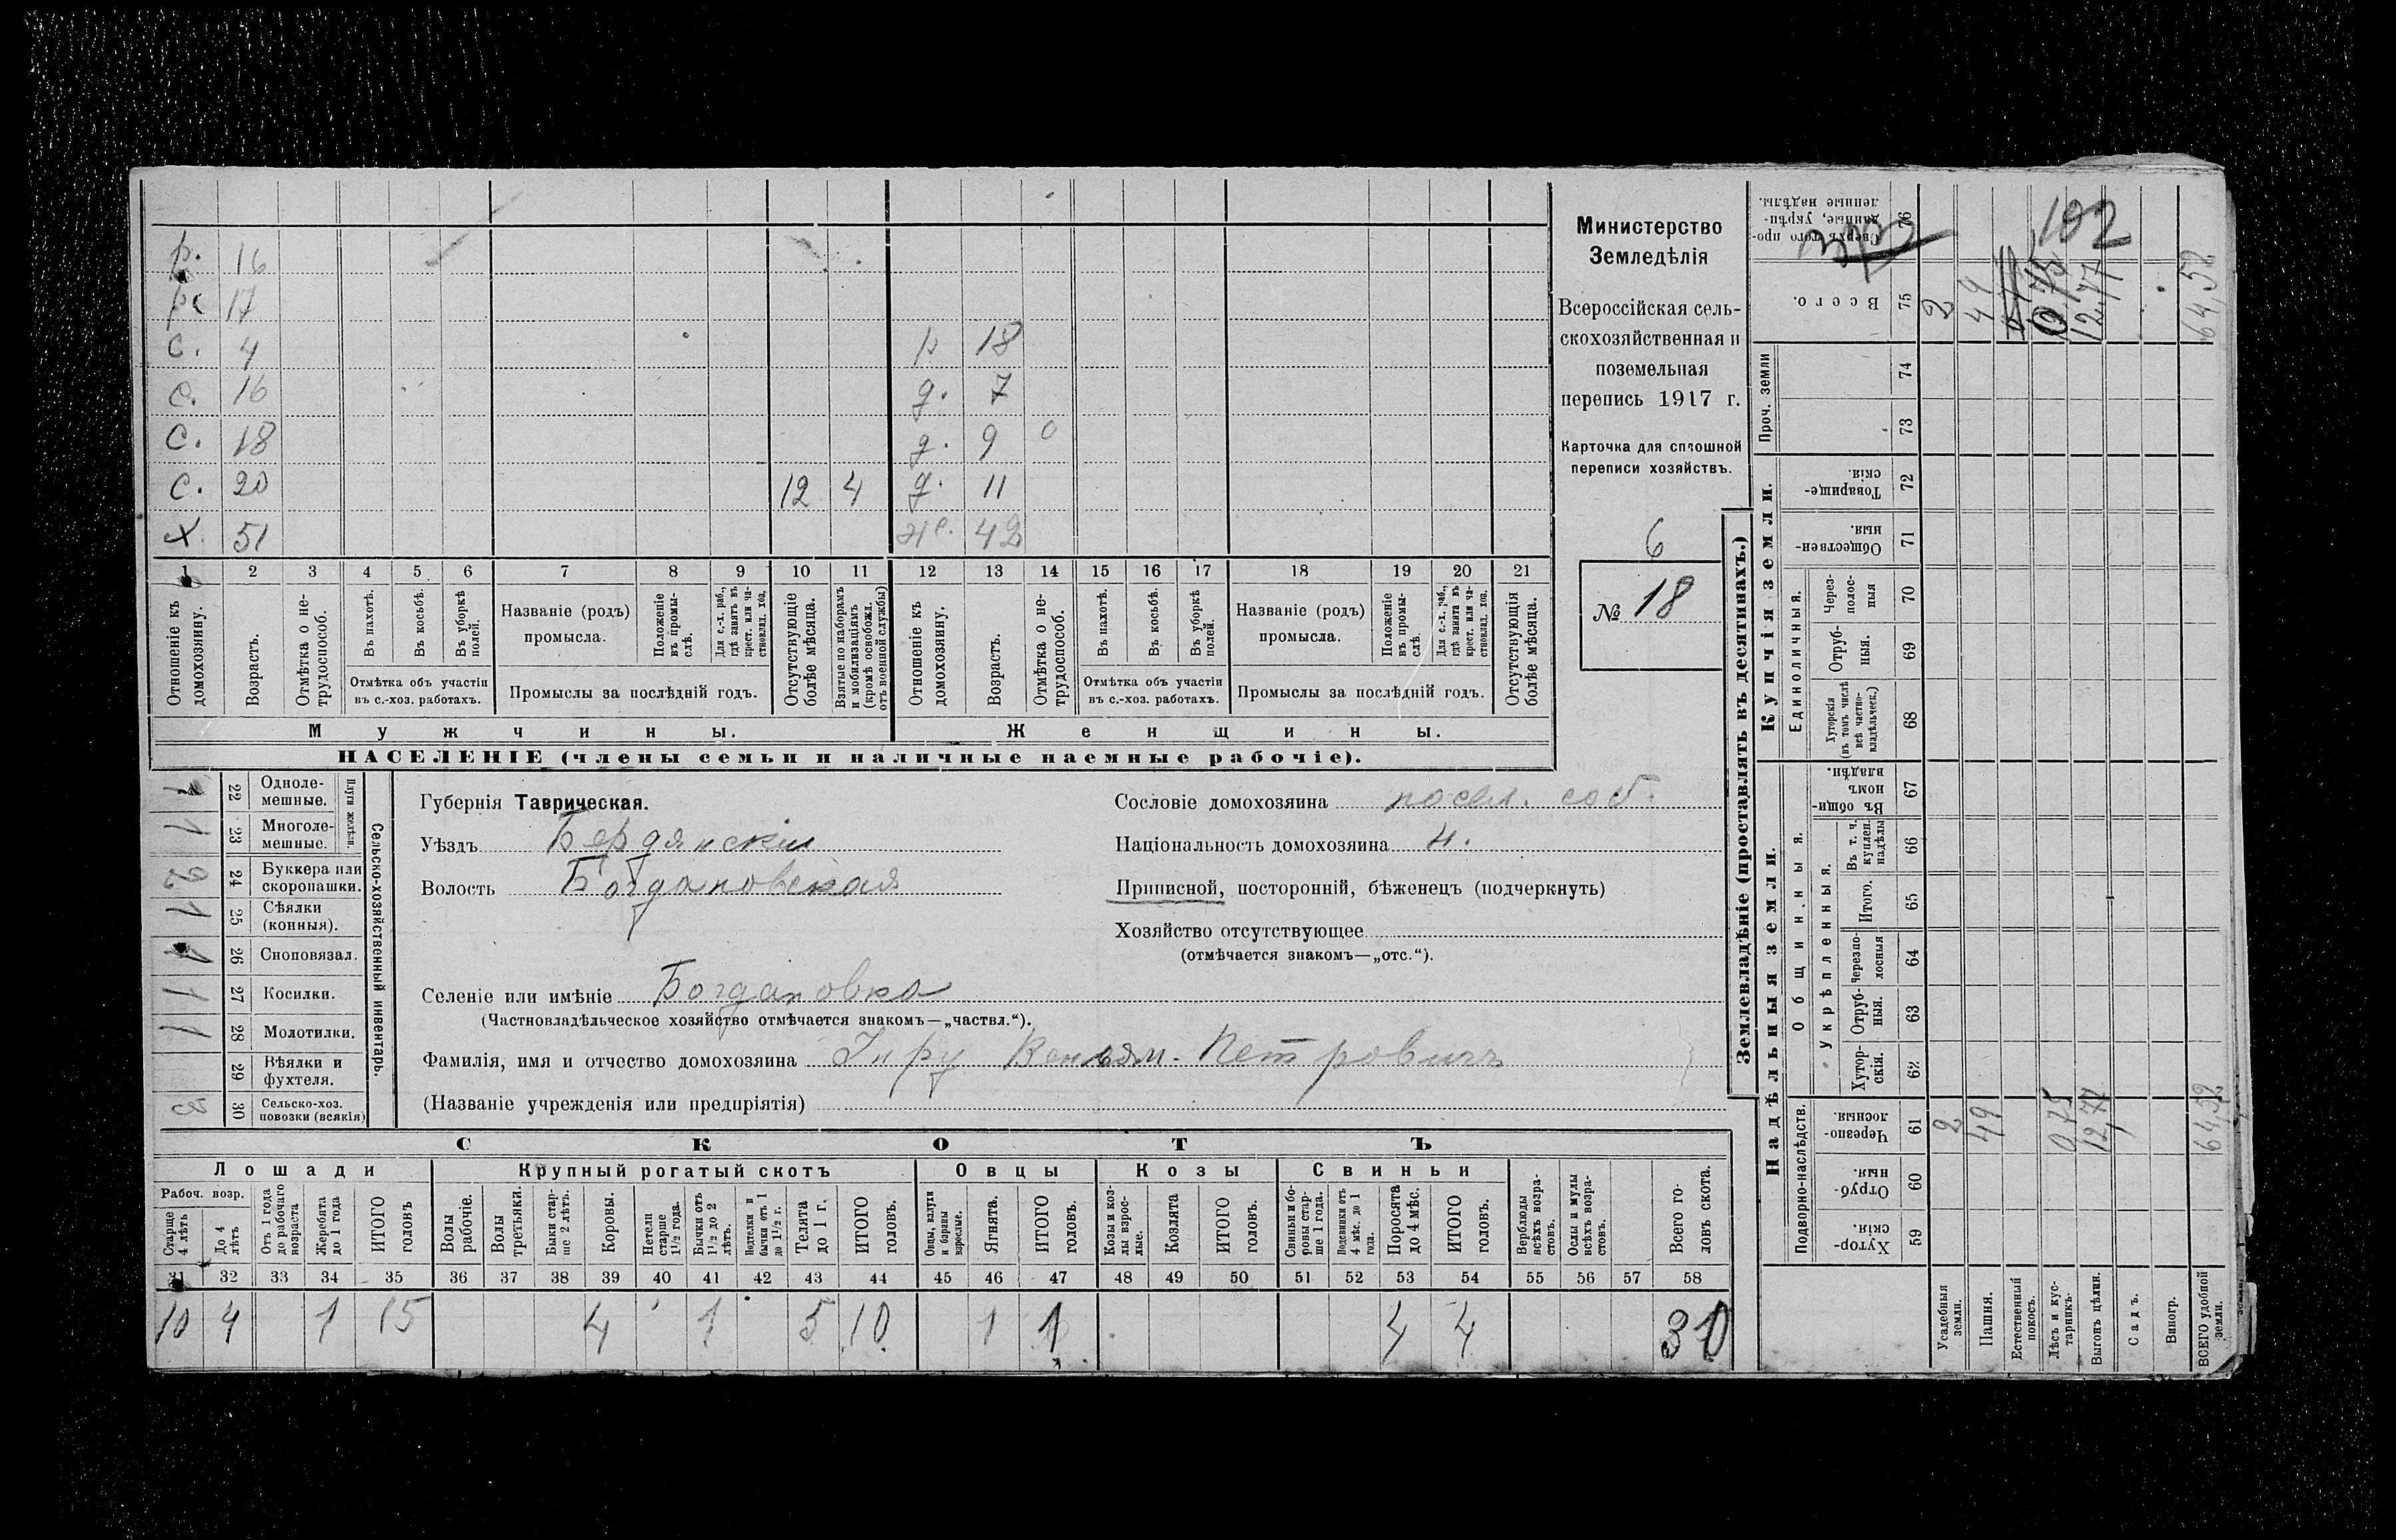 р. 16
р. 17
с. 4 р 18
с. 16 д. 7
с. 18 д. 9 0
с. 20 12 4 д. 11
х 51 ж. 42
1 2 3 4 5 6 7 8 9 10 11 12 13 14 15 16 17 18 19 20 21
Отношеніе къ домохозяину.
Возрастъ.
Отмѣтка о не-трудоспособ.
Въ пахотѣ.
Въ косьбѣ.
Въ уборкѣ полей.
Отмѣтка объ участіи въ с.-хоз. работахъ.
Названіе (родъ) промысла.
Положеніе въ промы-слѣ.
Для с.-х. раб., гдѣ занятъ въ крест. или ча-стновлад. хоз.
Промыслы за послѣдній годъ.
Отсутствующіе болѣе мѣсяца.
Взятые по наборамъ и мобилизаціямъ (кромѣ освобожд. отъ военной службы)
Отношеніе къ домохозяину.
Возрастъ.
Отмѣтка о не-трудоспособ.
Въ пахотѣ.
Въ косьбѣ.
Въ уборкѣ полей.
Отмѣтка объ участіи въ с.-хоз. работахъ.
Названіе (родъ) промысла.
Положеніе въ промы-слѣ.
Для с.-х. раб., гдѣ занятъ въ крест. или ча-стновлад. хоз.
Промыслы за послѣдній годъ.
Отсутствующія болѣе мѣсяца.
Мужчины. Женщины.
НАСЕЛЕНІЕ (члены семьи и наличные наемные рабочіе).
Министерство
Земледѣлія
Всероссійская сель-
скохозяйственная и
поземельная
перепись 1917 г.
Карточка для сплошной
переписи хозяйствъ.
6
№ 18
1 22 Одноле-мешные.
1 23 Многоле-мешные.
Плуги желѣзн.
2 24 Буккера или скоропашки.
1 25 Сѣялки (конныя).
1 26 Сноповязал.
1 27 Косилки.
1 28 Молотилки.
29 Вѣялки и фухтеля.
30 Сельско-хоз. повозки (всякія)
Сельско-хозяйственный инвентарь.
Губернія Таврическая.
Уѣздъ Бердянскій
Волость Богдановская
Селеніе или имѣніе Богдановка
(Частновладѣльческое хозяйство отмѣчается знакомъ—„частвл.“).
Фамилія, имя и отчество домохозяина Петровичъ
(Названіе учрежденія или предпріятія)
Сословіе домохозяина посел. соб.
Національность домохозяина н.
Приписной, посторонній, бѣженецъ (подчеркнуть)
Хозяйство отсутствующее
(отмѣчается знакомъ—„отс.“).
СКОТЪ
Лошади Крупный рогатый скотъ Овцы Козы Свиньи
Рабоч. возр.
Старше 4 лѣтъ
До 4 лѣтъ
Отъ 1 года до рабочаго возраста
Жеребята до 1 года
ИТОГО головъ
Волы рабочіе.
Волы третьяки.
Быки стар-ше 2 лѣтъ.
Коровы.
Нетели старше 1½ года.
Бычки отъ 1½ до 2 лѣтъ.
Подтелки и бычки отъ 1 до 1½ г.
Телята до 1 г.
ИТОГО головъ.
Овцы, валухи и бараны взрослые.
Ягнята.
ИТОГО головъ.
Козы и коз-лы взрос-лые.
Козлята
ИТОГО головъ.
Свиньи и бо-ровы стар-ше 1 года.
Подсвинки отъ 4 мѣс. до 1 года.
Поросята до 4 мѣс.
ИТОГО головъ.
Верблюды всѣхъ возра-стовъ.
Ослы и мулы всѣхъ возра-стовъ.
Всего го-ловъ скота.
31 32 33 34 35 36 37 38 39 40 41 42 43 44 45 46 47 48 49 50 51 52 53 54 55 56 57 58
10 4 1 15 4 1 5 10 1 1 4 4 30
Землевладѣніе (проставлять въ десятинахъ.)
Надѣльныя земли. Купчія земли. Проч. земли
Подворно-наслѣдств.
Общинныя.
Укрѣпленныя.
Единоличныя.
Хутор-скія. 59
Отруб-ныя. 60
Черезпо-лосныя. 61
Хутор-скія. 62
Отруб-ныя. 63
Черезпо-лосныя 64
Итого. 65
Въ т. ч. куплен. надѣлы 66
Въ общин-номъ владѣн. 67
Хуторскія (въ томъ числѣ всѣ частно-владѣльческ.) 68
Отруб-ныя. 69
Через-полос-ныя 70
Обществен-ныя. 71
Товарище-скія. 72
73
74
Всего. 75
Сверхъ того про-данные, укрѣп-ленные надѣлы. 76
Усадебныя земли. 2 2
Пашня. 49 49
Естественный покосъ.
Лѣсъ и кус-тарникъ. 0,75 0,75
Выгонъ цѣлин. 12,77 12,77
Садъ.
Виногр.
ВСЕГО удобной земли. 64,52 64,52
102